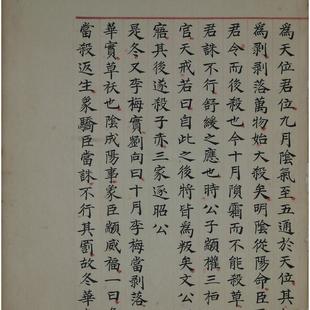 為天位君位九月陰氣至五通於天位其
為剥剥落萬物始大殺矣明陰從陽命臣
君令而後殺也今十月隕霜而不能殺草
君誅不行舒緩之應也時公子顓權三桓
官天戒若曰自此之後將皆為亂矣文公
寤其後遂殺子赤三家逐昭公
是冬又李梅實劉向曰十月李梅當剥落
華實草妖也陰成陽事象臣顓威福一曰
當殺反生象驕臣當誅不行其罰故冬華